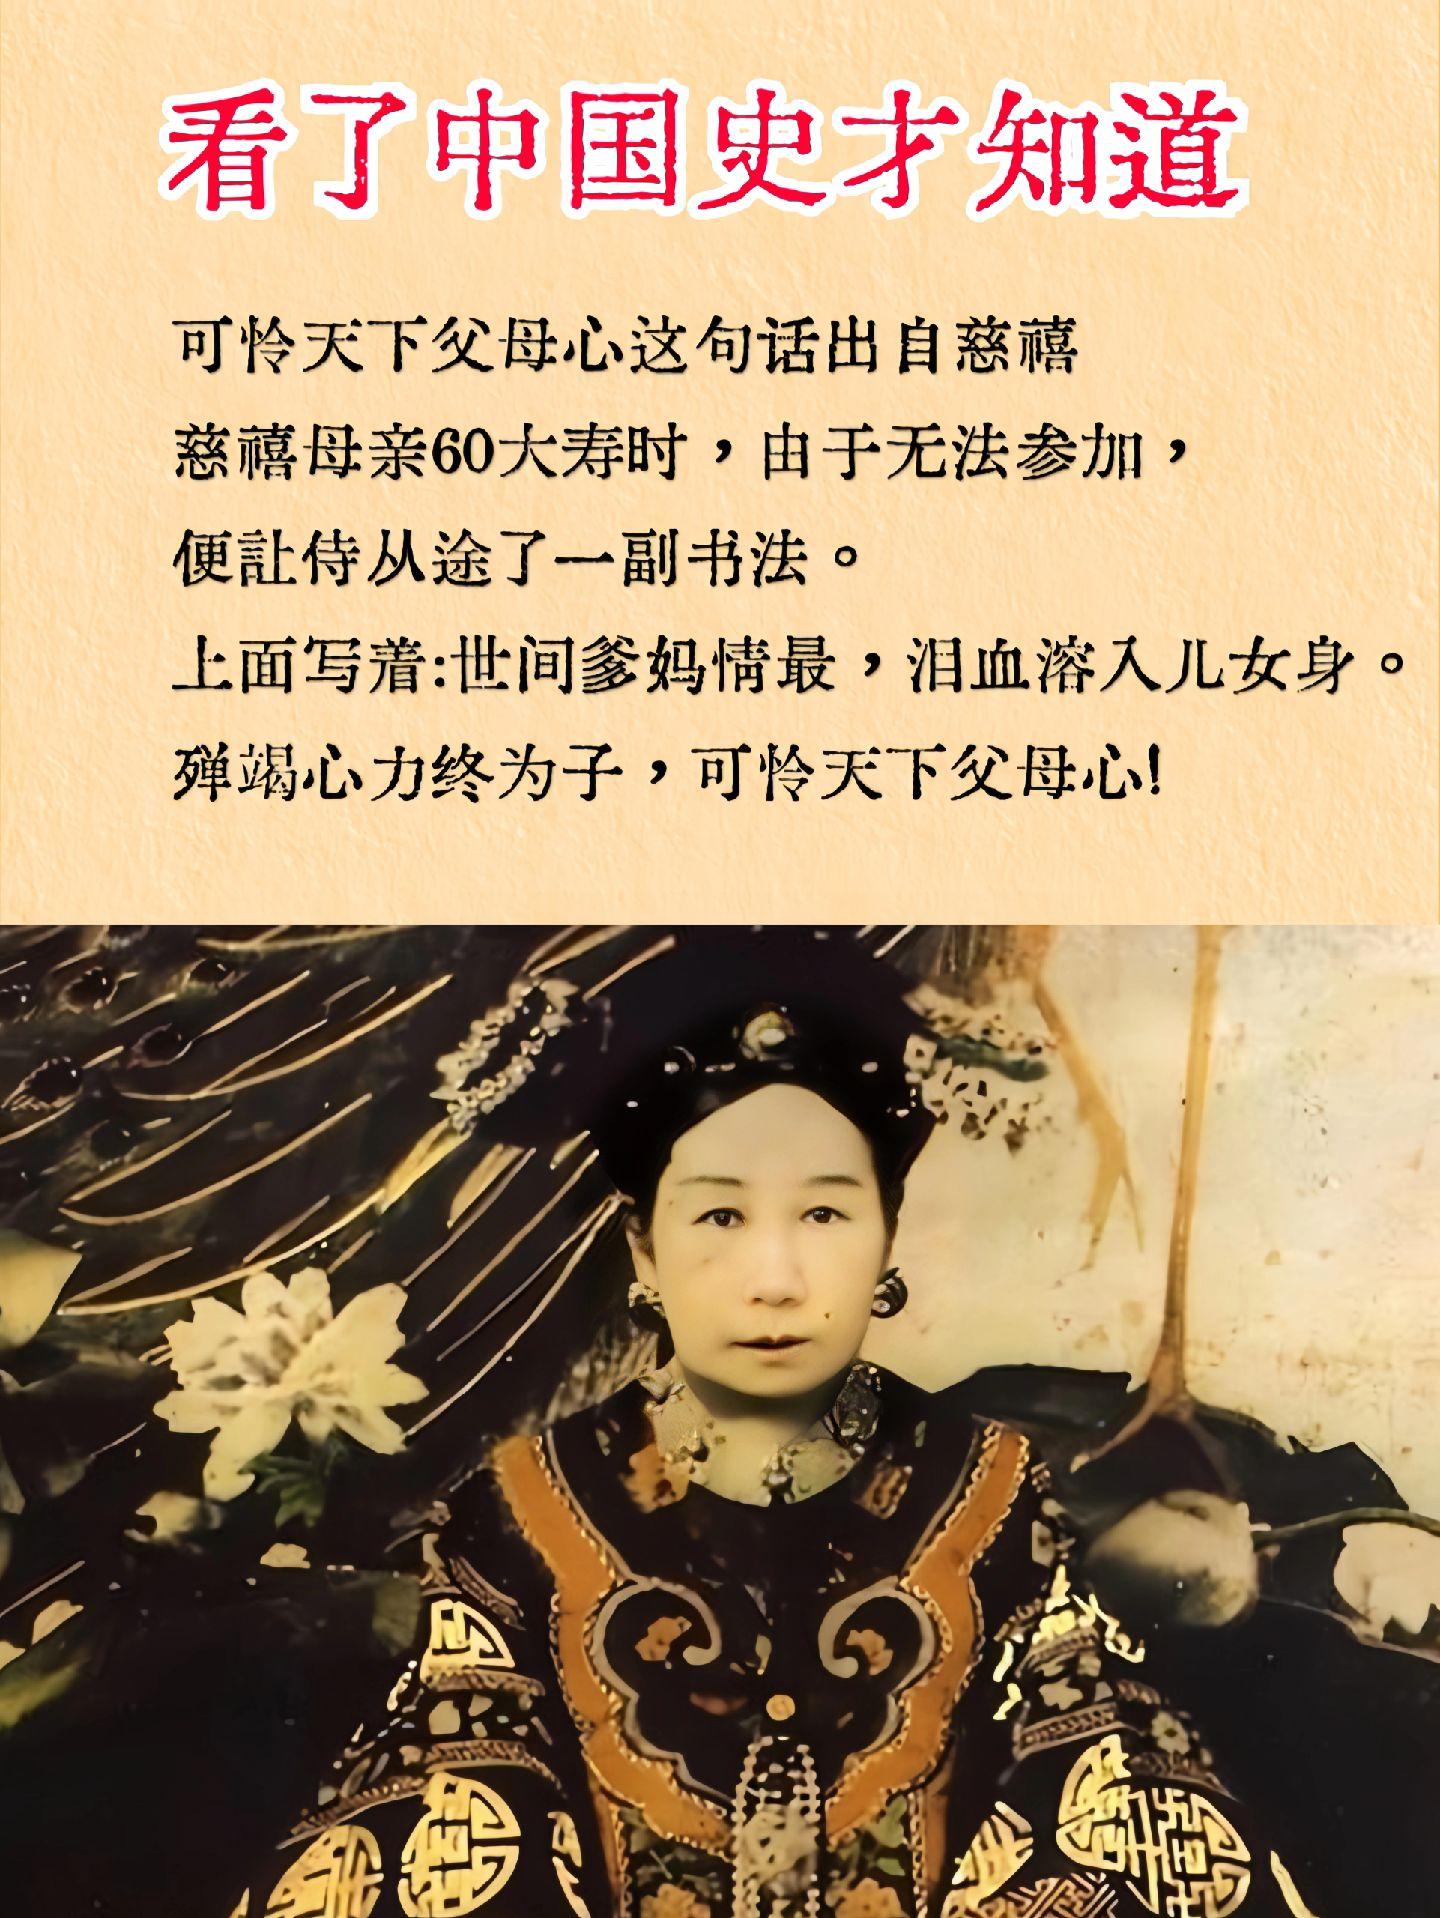 看了中国史才知道
可怜天下父母心这句话出自慈禧
慈禧母亲60大寿时，由于无法参加，
便註侍从途了一副书法。
上面写着:世间爹妈情最，泪血溶入儿女身。
殚竭心力终为子，可怜天下父母心!